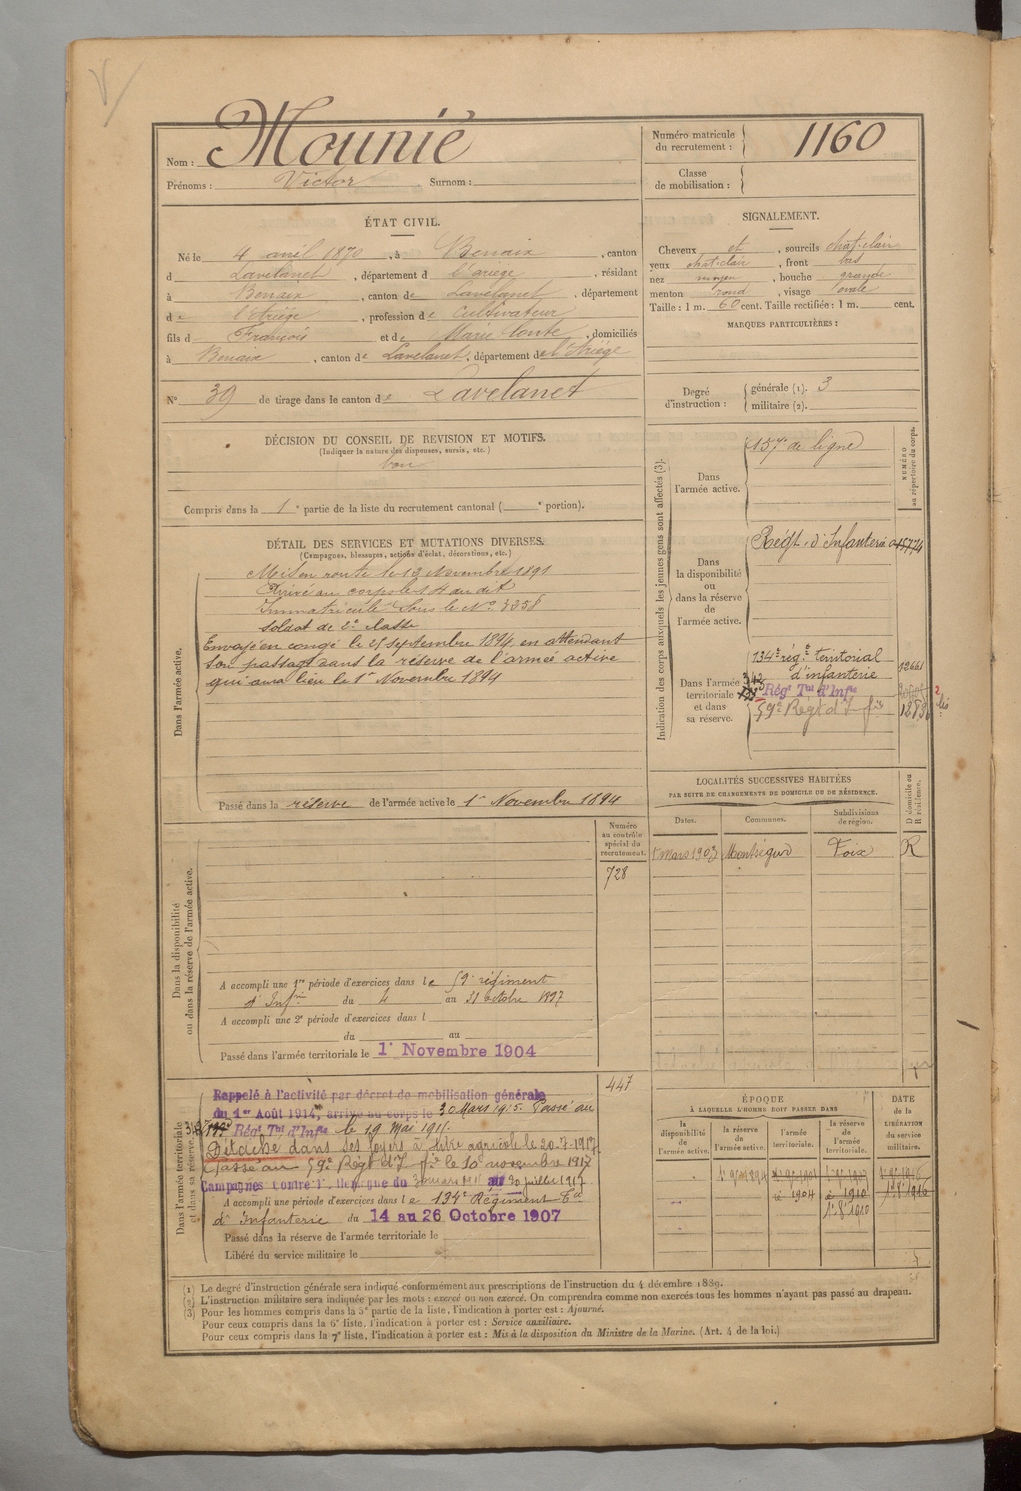 Nom : Mounié
Prénoms : Victor Surnom :
Numéro matricule du recrutement : 1160
Classe de mobilisation :
ÉTAT CIVIL.
Né le 4 avril 1870, à Benaix, canton
d Lavelanet, département d l'ariège, résidant
à Benaix, canton de Lavelanet, département
de l'Ariège, profession de Cultivateur
fils d François et de Marie, domiciliés
à Benaix, canton de Lavelanet, département de l'Ariège
N° 39 de tirage dans le canton de Lavelanet
SIGNALEMENT.
Cheveux et, sourcils chat-clair
yeux chat-clair, front bas
nez moyen, bouche grande
menton rond, visage ovale
Taille : 1 m. 60 cent. Taille rectifiée : 1 m. cent.
MARQUES PARTICULIÈRES :
Degré d'instruction : générale (1). 3
militaire (2).
DÉCISION DU CONSEIL DE REVISION ET MOTIFS.
(Indiquer la nature des dispenses, sursis, etc.)
bon
Compris dans la 1e partie de la liste du recrutement cantonal ( e portion).
DÉTAIL DES SERVICES ET MUTATIONS DIVERSES.
(Campagnes, blessures, actions d'éclat, décorations, etc.)
Dans l'armée active.
Mis en route le 13 Novembre 1891
Arrivé au corps le 14 au dit
Immatriculé sous le N° 3358
soldat de 2e classe
Envoyé en congé le 25 septembre 1894, en attendant
son passage dans la réserve de l'armée active
qui aura lieu le 1er Novembre 1894
Passé dans la réserve de l'armée active le 1er Novembre 1894
Indication des corps auxquels les jeunes gens sont affectés (3).
NUMÉRO au répertoire du corps.
Dans l'armée active.
157e de ligne
Dans la disponibilité ou dans la réserve de l'armée active.
Régt d'Infanterie 15774
Dans l'armée territoriale et dans sa réserve.
134e rég. territorial
d'infanterie 12661
342 Régt Tal d'Infie
59e Régt d'Infie
bis
LOCALITÉS SUCCESSIVES HABITÉES
PAR SUITE DE CHANGEMENTS DE DOMICILE OU DE RÉSIDENCE.
Dates. Communes. Subdivisions de région. D domicile ou R résidence.
mars 1903 Montségur Foix R
Dans la disponibilité ou dans la réserve de l'armée active.
Numéro au contrôle spécial du recrutement.
728
A accompli une 1re période d'exercices dans le 59e régiment
d'Infrie du 4 au 31 octobre 1897
A accompli une 2e période d'exercices dans l
du au
Passé dans l'armée territoriale le 1er Novembre 1904
Dans l'armée territoriale et dans sa réserve.
447
Rappelé à l'activité par décret de mobilisation générale
du 1er Août 1914, arrivé au corps le 30 Mars 1915. Passé au
Régt Tal d'Infie le 29 Mai 1915.
Détaché dans ses foyers à titre agricole le 20-7-1917
Passé au 59e Régt d'Infie le 10 novembre 1917
Campagnes contre l'Allemagne du 30 mars 1915 au 20 juillet 1917
A accompli une période d'exercices dans le 134e Régiment Tal
d'Infanterie du 14 au 26 Octobre 1907
Passé dans la réserve de l'armée territoriale le
Libéré du service militaire le
ÉPOQUE
À LAQUELLE L'HOMME DOIT PASSER DANS
la disponibilité de l'armée active. la réserve de l'armée active. l'armée territoriale. la réserve de l'armée territoriale.
DATE de la LIBÉRATION du service militaire.
1904 1910 1916
(1) Le degré d'instruction générale sera indiqué conformément aux prescriptions de l'instruction du 4 décembre 1889.
(2) L'instruction militaire sera indiquée par les mots : exercé ou non exercé. On comprendra comme non exercés tous les hommes n'ayant pas passé au drapeau.
(3) Pour les hommes compris dans la 5e partie de la liste, l'indication à porter est : Ajourné.
Pour ceux compris dans la 6e liste, l'indication à porter est : Service auxiliaire.
Pour ceux compris dans la 7e liste, l'indication à porter est : Mis à la disposition du Ministre de la Marine. (Art. 4 de la loi.)